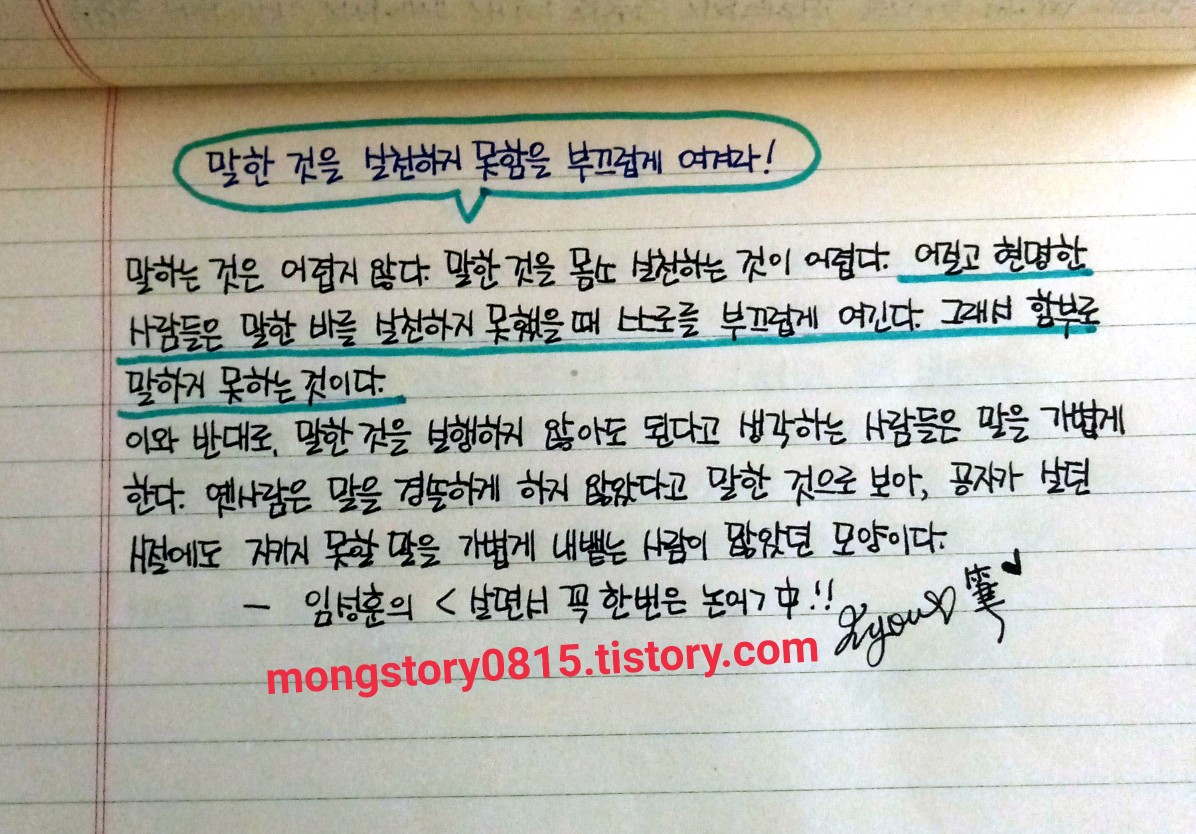 말한 것을 실천하지 못함을 부끄럽게 여겨라!
말하는 것은 어렵지 않다. 말한 것을 몸소 실천하는 것이 어렵다. 어질고 현명한
사람들은 말한 바를 실천하지 못했을 때 스스로를 부끄럽게 여긴다. 그래서 함부로
말하지 못하는 것이다.
이와 반대로, 말한 것을 실행하지 않아도 된다고 생각하는 사람들은 말을 가볍게
한다. 옛사람은 말을 경솔하게 하지 않았다고 말한 것으로 보아, 공자가 살던
시절에도 지키지 못할 말을 가볍게 내뱉는 사람이 많았던 모양이다.
- 임성훈의 < 살면서 꼭 한번은 논어> 中!!
mongstory0815.tistory.com